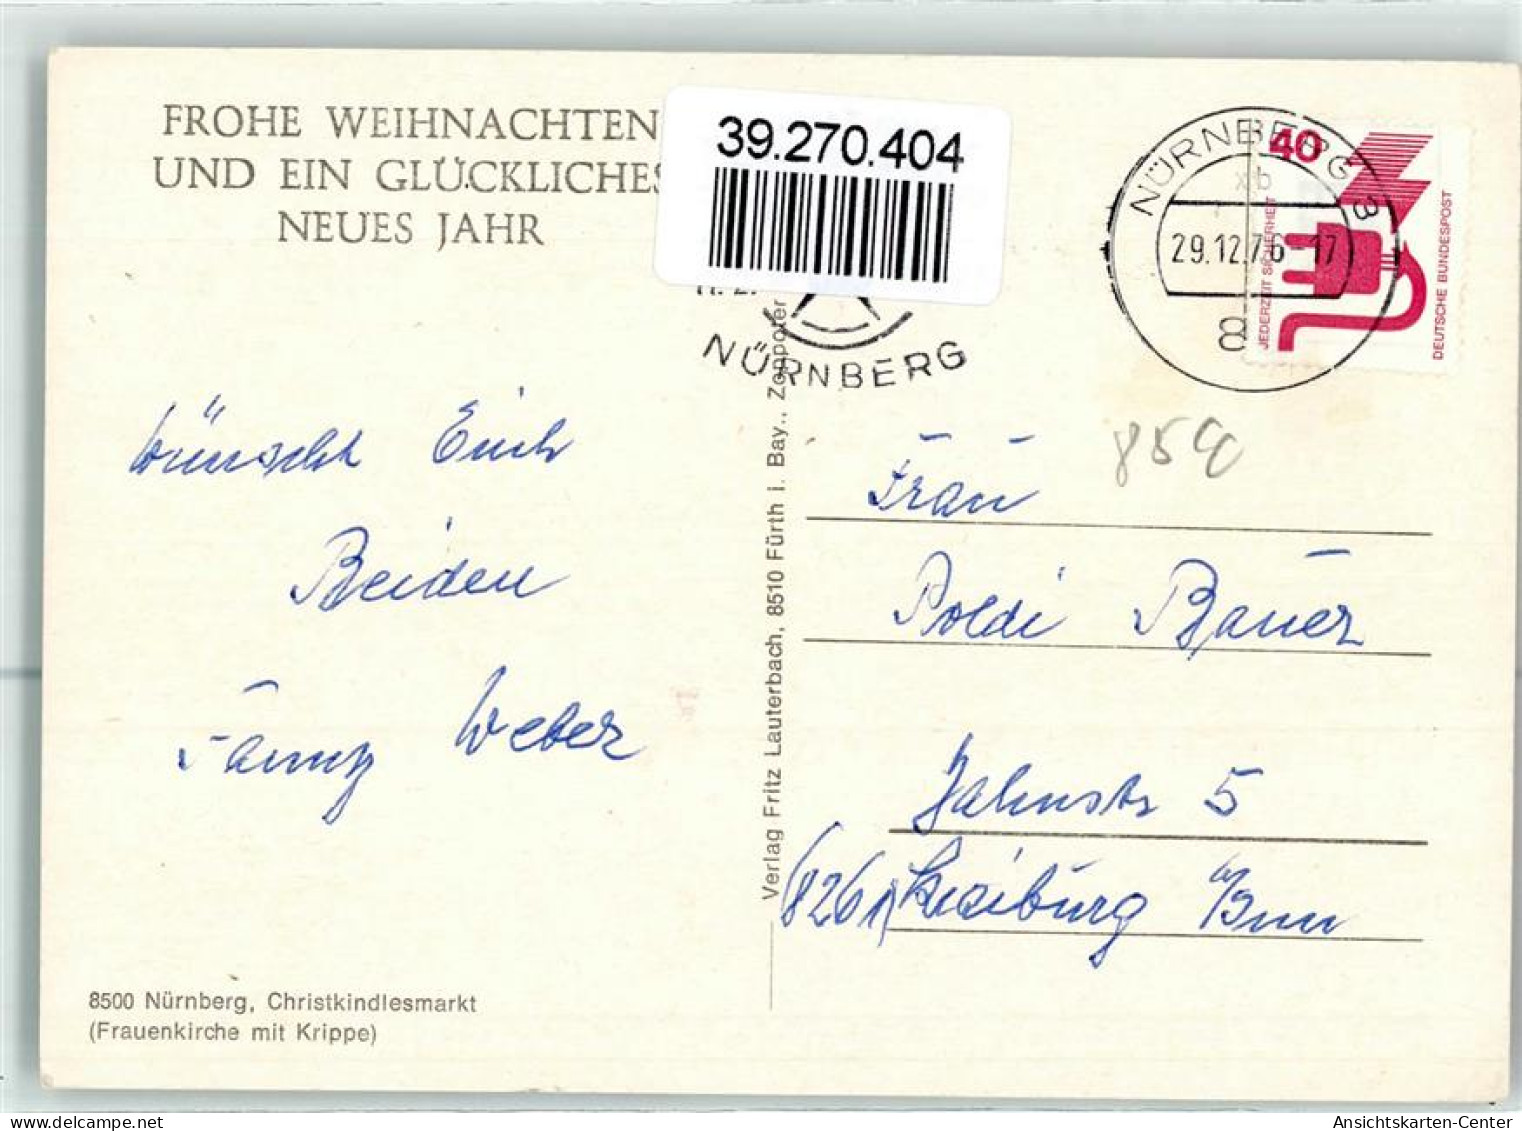 FROHE WEIHNACHTEN
UND EIN GLÜCKLICHES
NEUES JAHR
39.270.404
NÜRNBERG
NÜRNBERG 3
xb
29.12.76-17
8
40
JEDERZEIT SICHERHEIT
DEUTSCHE BUNDESPOST
854
wünscht Euch
Beiden
Fanny Weber
Verlag Fritz Lauterbach, 8510 Fürth i. Bay., Zoppoter
Frau
Poldi Bauer
Jahnstr 5
8261 Kraiburg a/Inn
8500 Nürnberg, Christkindlesmarkt
(Frauenkirche mit Krippe)
Ansichtskarten-Center